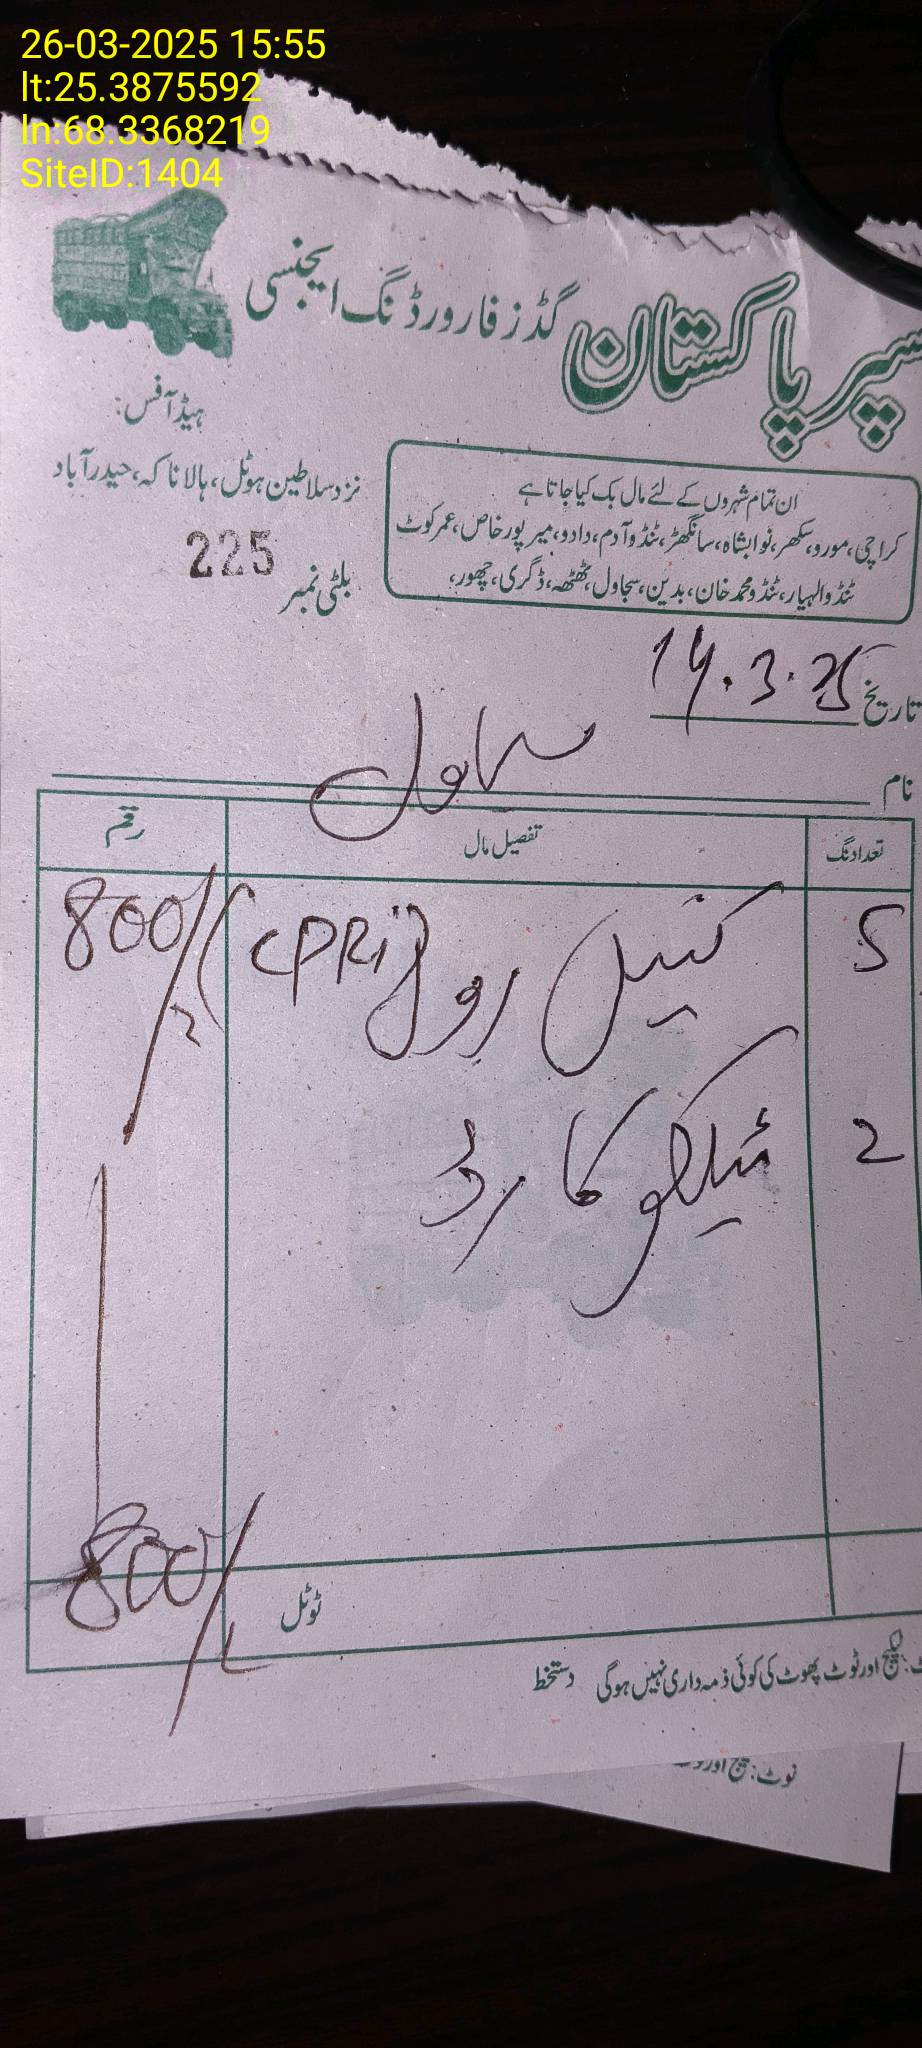 26-03-2025 15:55
lt:25.3875592
ln:68.3368219
SiteID:1404
سپر پاکستان گڈز فارورڈنگ ایجنسی
ہیڈ آفس:
نزد سلاطین ہوٹل، ہالا ناکہ، حیدرآباد
ان تمام شہروں کے لئے مال بک کیا جاتا ہے
کراچی، مورو، سکھر، نوابشاہ، سانگھڑ، ٹنڈو آدم، دادو، میرپور خاص، عمرکوٹ
ٹنڈوالہیار، ٹنڈو محمد خان، بدین، سجاول، ٹھٹھہ، ڈگری، چھور،
بلٹی نمبر 225
تاریخ 14.3.25
نام سجاول
تعداد نگ تفصیل مال رقم
5 کیبل رول (CPRi) 800/
2 کارڈ
ٹوٹل 800/
لیکیج اور ٹوٹ پھوٹ کی کوئی ذمہ داری نہیں ہوگی دستخط
نوٹ: